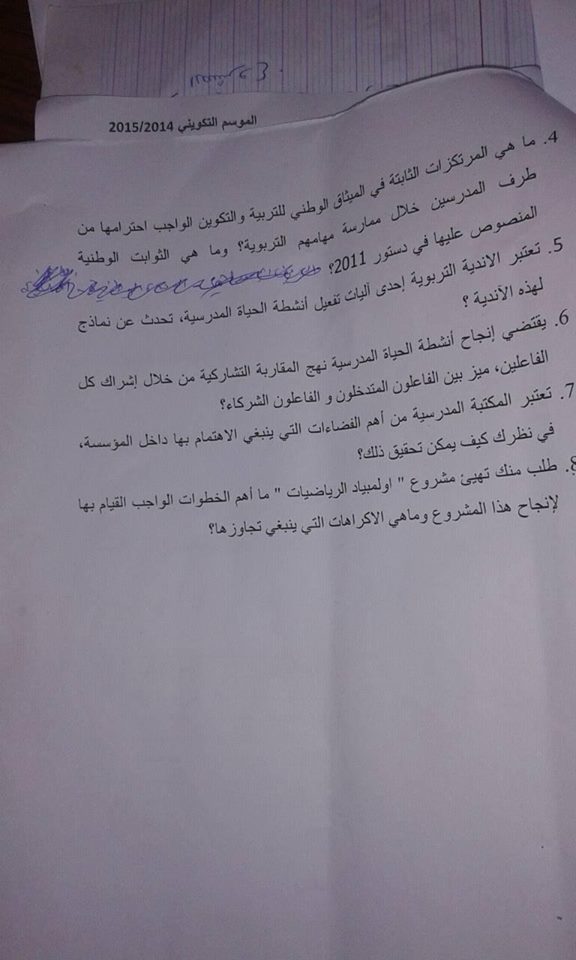 الموسم التكويني 2015/2014
4. ما هي المرتكزات الثابتة في الميثاق الوطني للتربية والتكوين الواجب احترامها من
طرف المدرسين خلال ممارسة مهامهم التربوية؟ وما هي الثوابت الوطنية
المنصوص عليها في دستور 2011؟
5. تعتبر الاندية التربوية إحدى آليات تفعيل أنشطة الحياة المدرسية، تحدث عن نماذج
لهذه الآندية ؟
6. يقتضي إنجاح أنشطة الحياة المدرسية نهج المقاربة التشاركية من خلال إشراك كل
الفاعلين، ميز بين الفاعلون المتدخلون و الفاعلون الشركاء؟
7. تعتبر المكتبة المدرسية من أهم الفضاءات التي ينبغي الاهتمام بها داخل المؤسسة،
في نظرك كيف يمكن تحقيق ذلك؟
8. طلب منك تهيئ مشروع " اولمبياد الرياضيات " ما أهم الخطوات الواجب القيام بها
لإنجاح هذا المشروع وماهي الاكراهات التي ينبغي تجاوزها؟